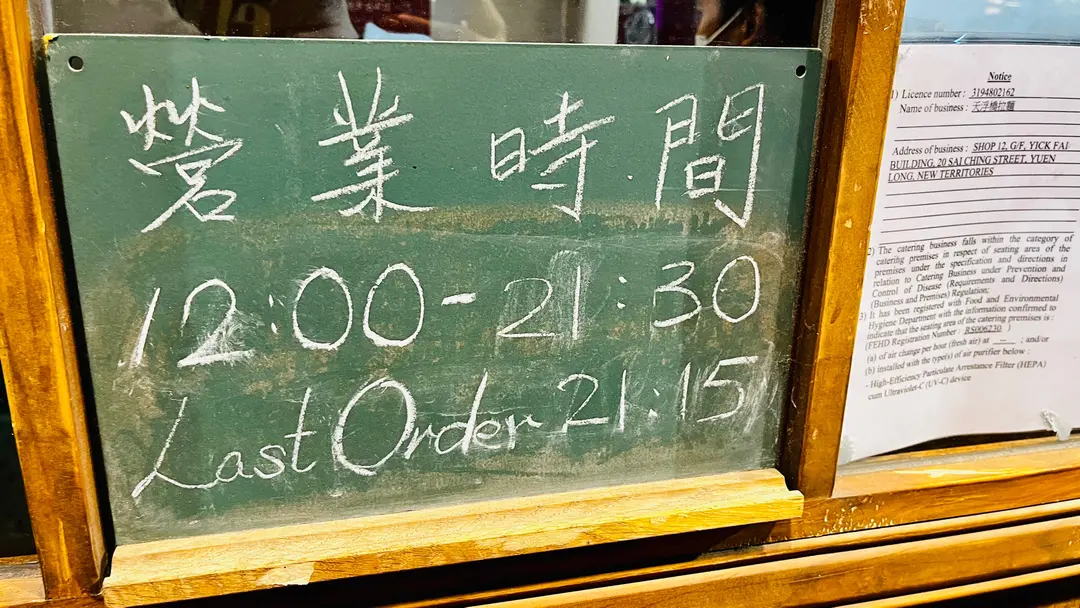 營業時間
12:00-21:30
Last Order 21:15
Notice
1) Licence number : 3194802162
Name of business : 天浮橋拉麵
Address of business : SHOP 12, G/F, YICK FAI
BUILDING, 20 SAI CHING STREET, YUEN
LONG, NEW TERRITORIES
2) The catering business falls within the category of
catering premises in respect of seating area of the
premises under the specification and directions in
relation to Catering Business under Prevention and
Control of Disease (Requirements and Directions)
(Business and Premises) Regulation;
3) It has been registered with Food and Environmental
Hygiene Department with the information confirmed to
indicate that the seating area of the catering premises is :
(FEHD Registration Number : RS006230 )
(a) of air change per hour (fresh air) at -- ; and/or
(b) installed with the type(s) of air purifier below :
- High-Efficiency Particulate Arrestance Filter (HEPA)
cum Ultraviolet-C (UV-C) device